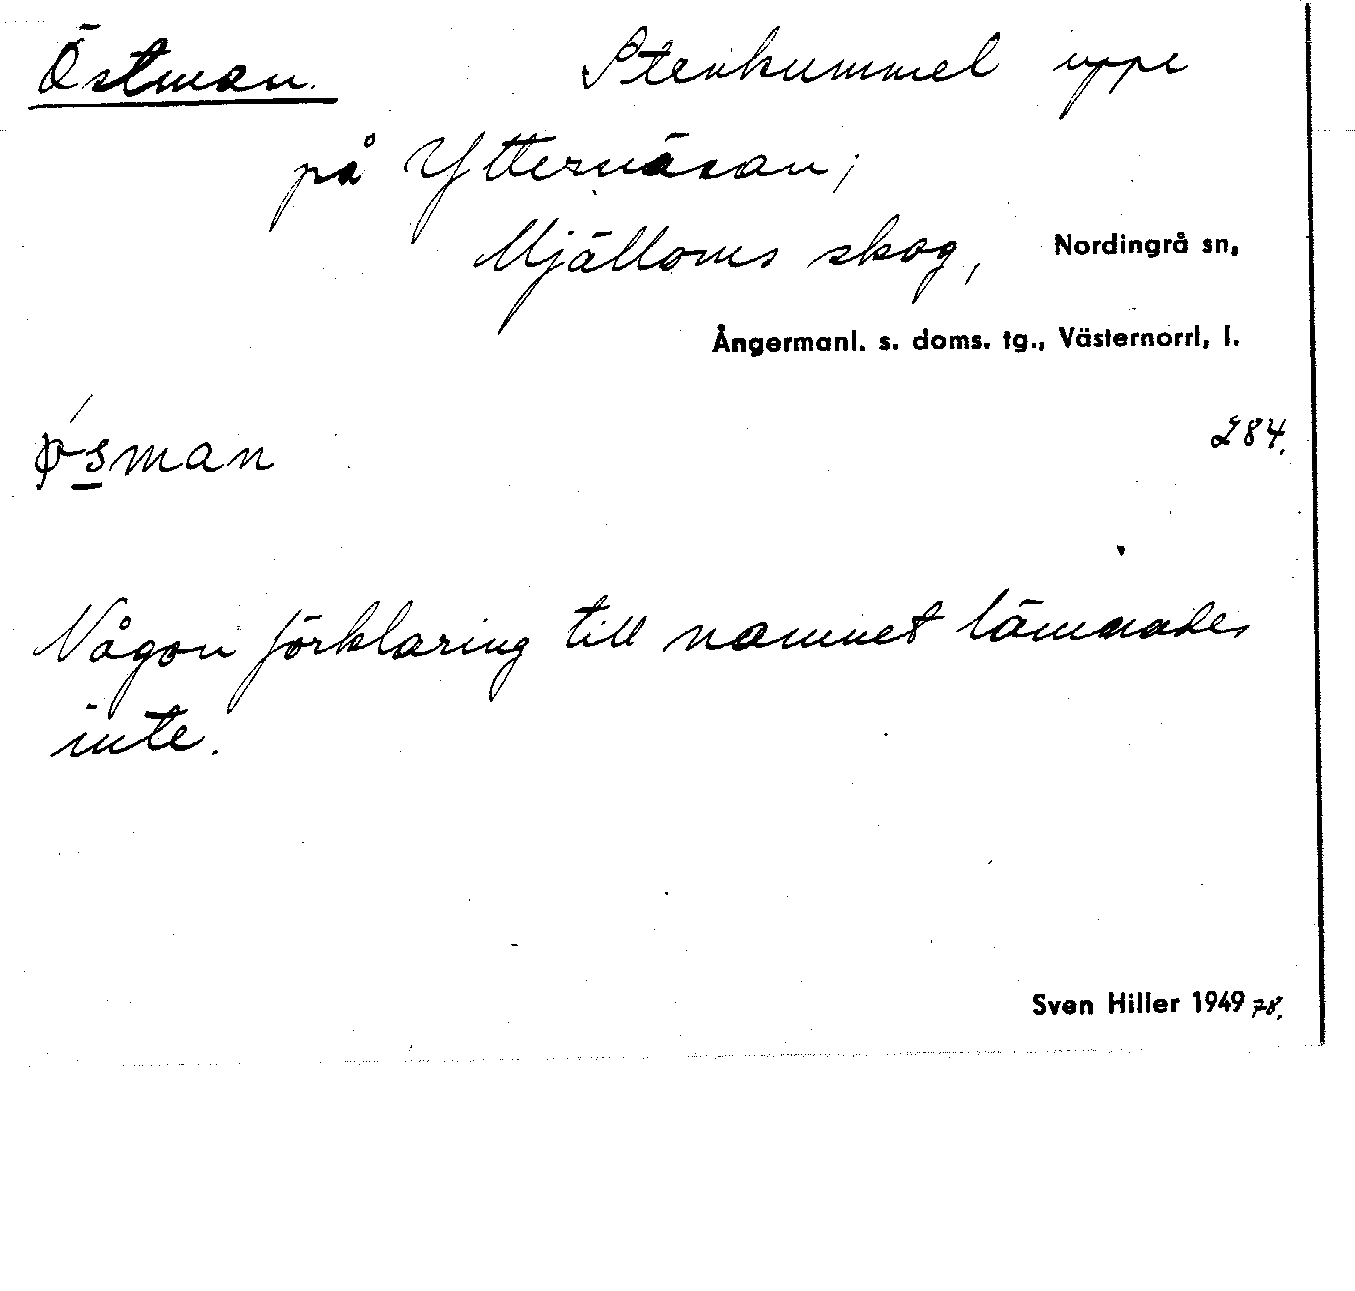 Östman. Stenkummel uppe
på Ytternäsan;
Mjälloms skog, Nordingrå sn,
Ångermanl. s. doms. tg., Västernorrl, l.
284.
ø´sman
Någon förklaring till namnet lämnades
inte.
Sven Hiller 1949 78.